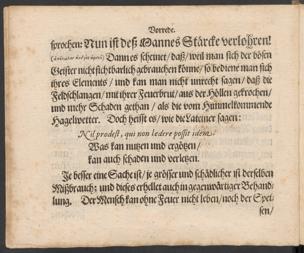 Vorrede.
sprochen: Nun ist deß Mannes Stärcke verlohren!
Dannes scheinet/ daß/ weil man sich der bösen
Geister nicht sichtbarlich gebrauchen könne/ so bediene man sich
ihres Elements/ und kan man nicht unrecht sagen/ daß die
Feldschlangen/ mit ihrer Feuerbrut/ aus der Höllen gekrochen/
und mehr Schaden gethan/ als die vom Himmelkommende
Hagelwetter. Doch heisst es/ wie die Lateiner sagen:
Nil prodest, qui non lædere possit idem.
Was kan nutzen und ergötzen/
kan auch schaden und verletzen.
Je besser eine Sache ist/ je grösser und schädlicher ist derselben
Mißbrauch: und dieses erhellet auch in gegenwärtiger Behand-
lung. Der Mensch kan ohne Feuer nicht leben/ noch der Spei-
sen/